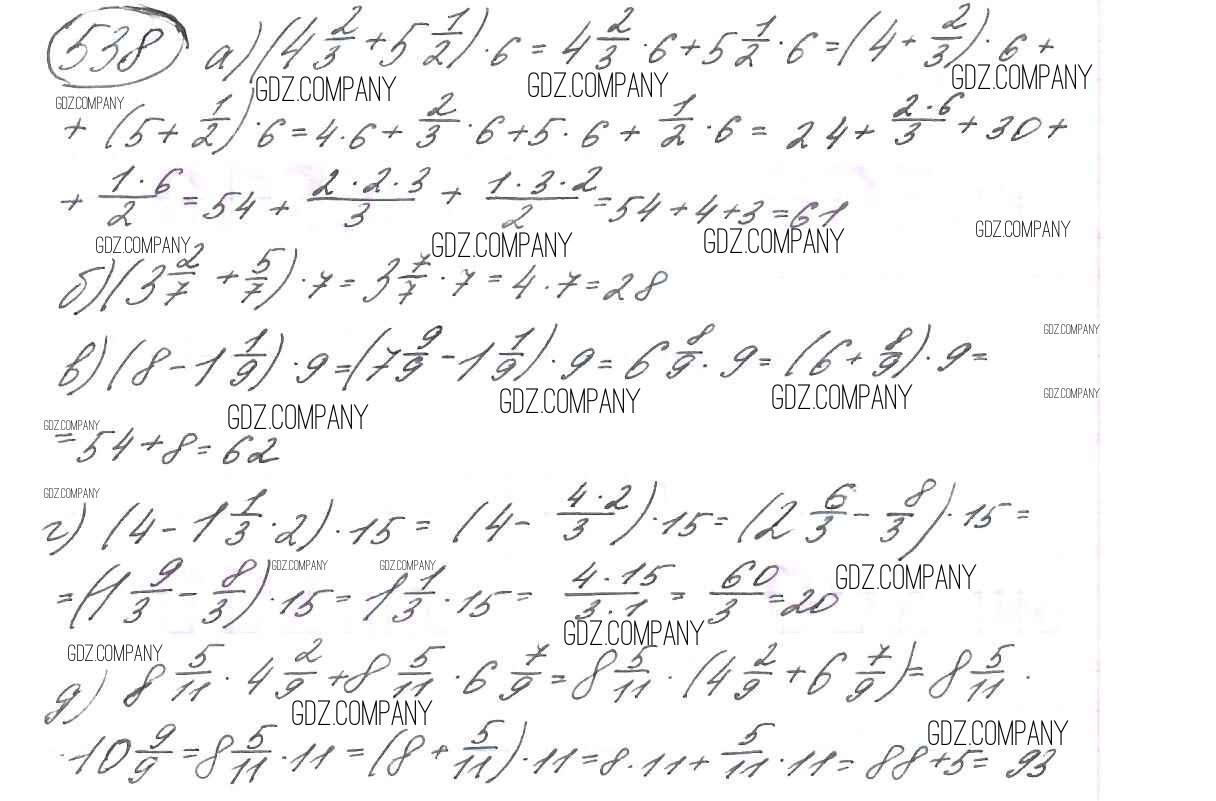 538 а) (4 2/3 + 5 1/2) · 6 = 4 2/3 · 6 + 5 1/2 · 6 = (4 + 2/3) · 6 +
GDZ.COMPANY GDZ.COMPANY GDZ.COMPANY
GDZ.COMPANY
+ (5 + 1/2) · 6 = 4 · 6 + 2/3 · 6 + 5 · 6 + 1/2 · 6 = 24 + (2 · 6)/3 + 30 +
+ (1 · 6)/2 = 54 + (2 · 2 · 3)/3 + (1 · 3 · 2)/2 = 54 + 4 + 3 = 61
GDZ.COMPANY
GDZ.COMPANY GDZ.COMPANY GDZ.COMPANY
б) (3 2/7 + 5/7) · 7 = 3 7/7 · 7 = 4 · 7 = 28
GDZ.COMPANY
в) (8 - 1 1/9) · 9 = (7 9/9 - 1 1/9) · 9 = 6 8/9 · 9 = (6 + 8/9) · 9 =
GDZ.COMPANY GDZ.COMPANY GDZ.COMPANY GDZ.COMPANY
GDZ.COMPANY
= 54 + 8 = 62
GDZ.COMPANY
г) (4 - 1 1/3 · 2) · 15 = (4 - (4 · 2)/3) · 15 = (2 6/3 - 8/3) · 15 =
GDZ.COMPANY GDZ.COMPANY GDZ.COMPANY
= (1 9/3 - 8/3) · 15 = 1 1/3 · 15 = (4 · 15)/(3 · 1) = 60/3 = 20
GDZ.COMPANY
GDZ.COMPANY
д) 8 5/11 · 4 2/9 + 8 5/11 · 6 7/9 = 8 5/11 · (4 2/9 + 6 7/9) = 8 5/11 ·
GDZ.COMPANY GDZ.COMPANY
· 10 9/9 = 8 5/11 · 11 = (8 + 5/11) · 11 = 8 · 11 + 5/11 · 11 = 88 + 5 = 93